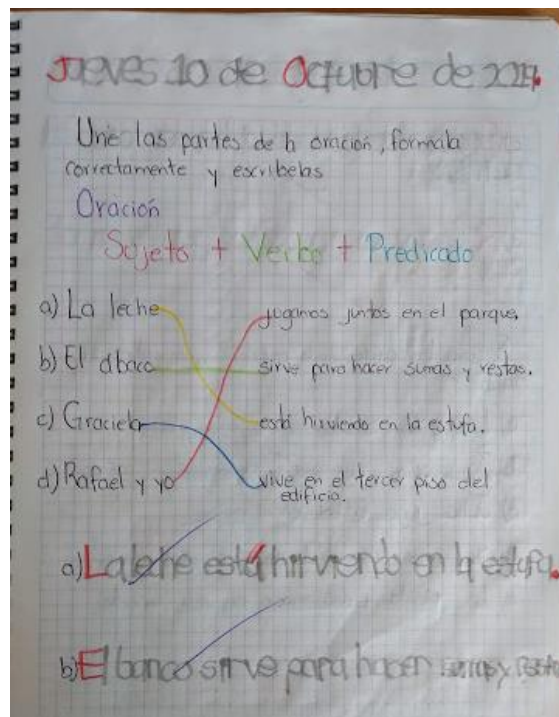 Jueves 10 de Octubre de 2019.
Une las partes de la oración, formala
correctamente y escribelas
Oración
Sujeto + Verbo + Predicado
a) La leche jugamos juntos en el parque.
b) El abaco sirve para hacer sumas y restas.
c) Graciela está hirviendo en la estufa.
d) Rafael y yo vive en el tercer piso del
edificio.
a) La leche está hirviendo en la estufa.
b) El banco sirve para hacer sumas y restas